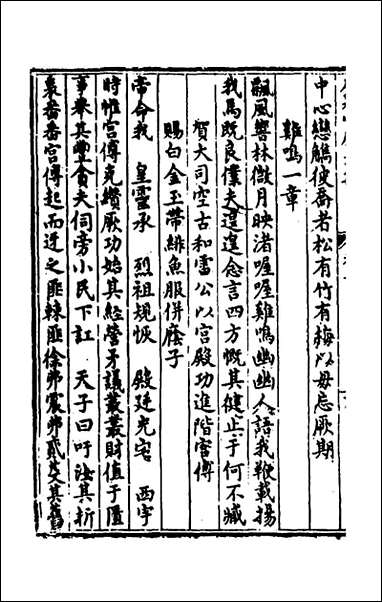 中心戀鵤彼喬者松有竹有梅以毋忘厥期
雞鳴一章
飄風響林微月映渚喔喔雞鳴幽幽人語我鞭載揚
我馬既良僕夫遑遑念言四方慨其健止于何不臧
賀大司空古和雷公以宮殿功進階宮傅
賜白金玉帶緋魚服併廕子
帝命我 皇靈承 烈祖規恢 殿廷光宅 西宇
時惟宮傅克纘厥功始其經營予議叢叢財值于匱
事舉其豐貪夫伺旁小民下訌 天子曰吁汝其折
衷番番宮傅起而迓之匪棘匪徐弗震弗貳芟其舊